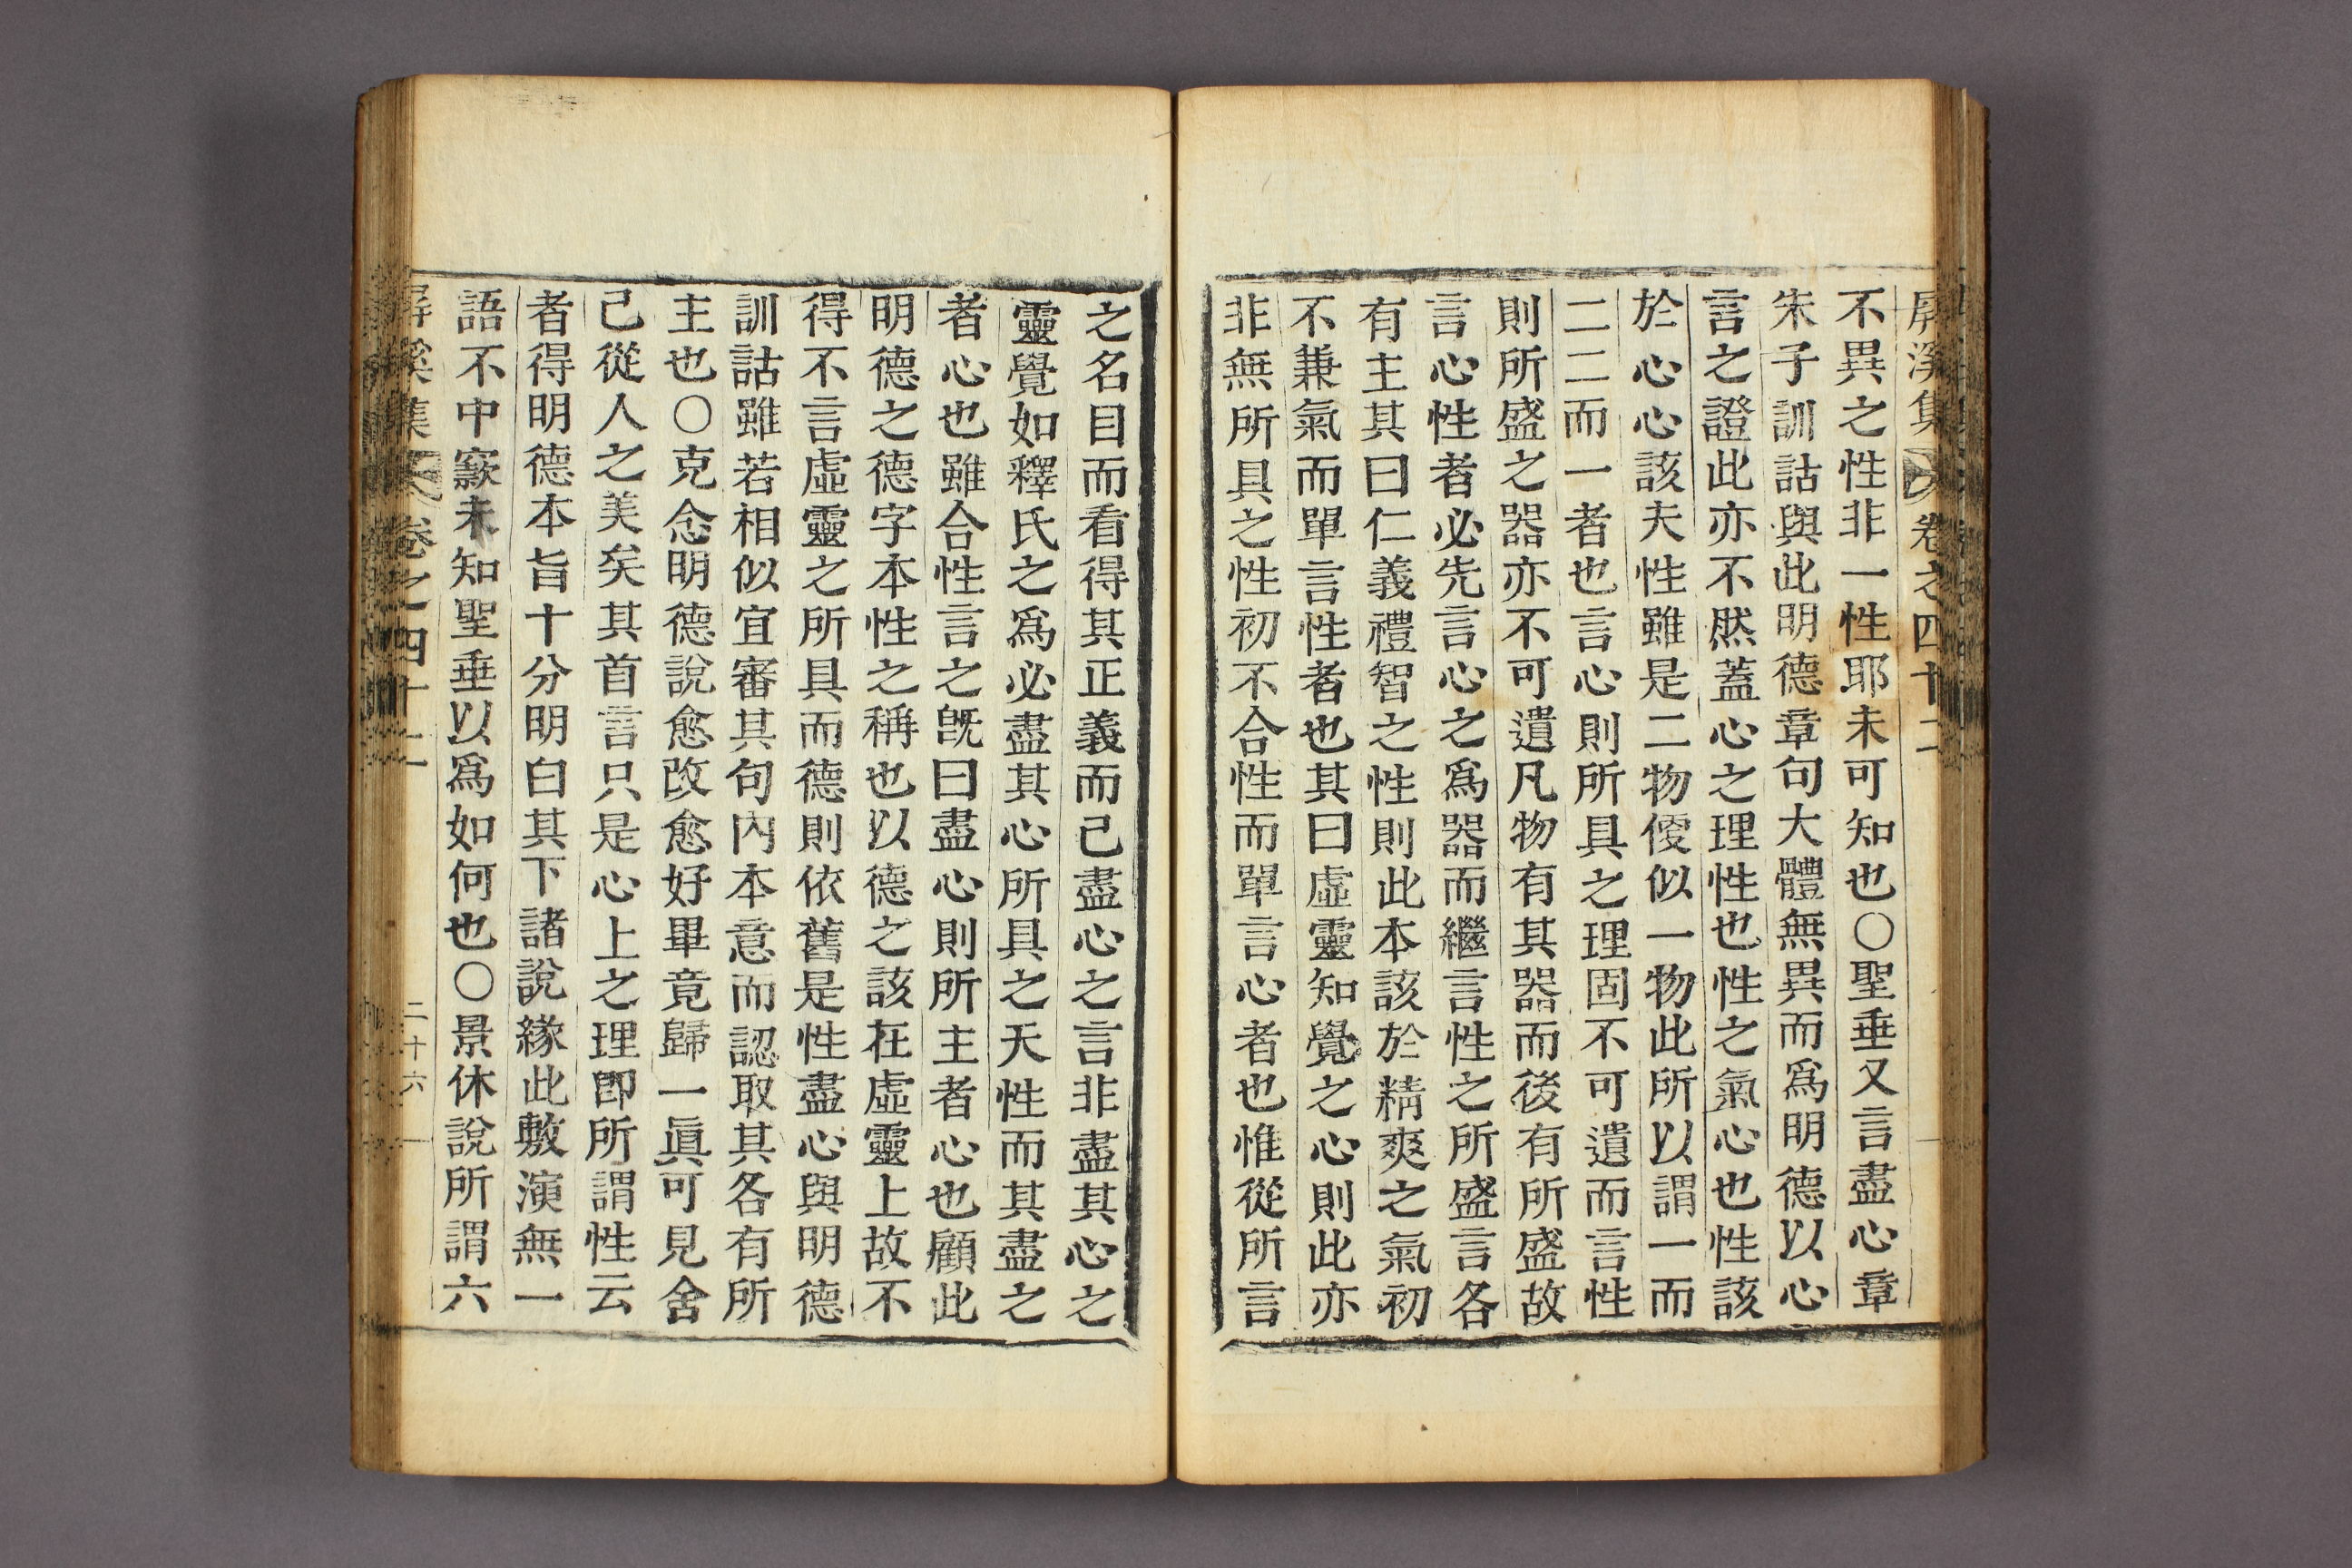 屛溪集 卷之四十二
不異之性非一性耶未可知也○聖垂又言盡心章
朱子訓詁與此明德章句大體無異而爲明德以心
言之證此亦不然蓋心之理性也性之氣心也性該
於心心該夫性雖是二物優似一物此所以謂一而
二二而一者也言心則所具之理固不可遺而言性
則所盛之器亦不可遺凡物有其器而後有所盛故
言心性者必先言心之爲器而繼言性之所盛言各
有主其曰仁義禮智之性則此本該於精爽之氣初
不兼氣而單言性者也其曰虛靈知覺之心則此亦
非無所具之性初不合性而單言心者也惟從所言
之名目而看得其正義而已盡心之言非盡其心之
靈覺如釋氏之爲必盡其心所具之天性而其盡之
者心也雖合性言之旣曰盡心則所主者心也顧此
明德之德字本性之稱也以德之該在虛靈上故不
得不言虛靈之所具而德則依舊是性盡心與明德
訓詁雖若相似宜審其句內本意而認取其各有所
主也○克念明德說愈改愈好畢竟歸一眞可見舍
己從人之美矣其首言只是心上之理卽所謂性云
者得明德本旨十分明白其下諸說緣此敷演無一
語不中窾未知聖垂以爲如何也○景休說所謂六
屛溪集 卷之四十二 二十六